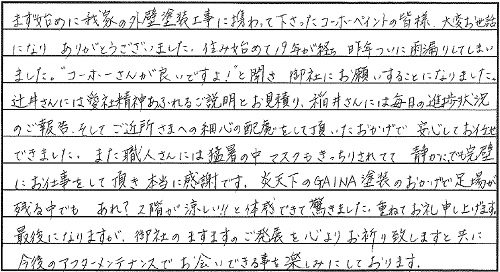 まず始めに我家の外壁塗装工事に携わって下さったコーホーペイントの皆様、大変お世話
になり ありがとうございました。住み始めて19年が経ち 昨年ついに雨漏りしてしまい
ました。"コーホーさんが良いですよ!"と聞き 御社にお願いすることになりました。
辻井さんには愛社精神あふれるご説明とお見積り、稲井さんには毎日の進捗状況
のご報告、そしてご近所さまへの細心の配慮をして頂いたおかげで 安心してお任せ
できました。また職人さんには猛暑の中マスクもきっちりされてて 静かにでも完璧
にお仕事をして頂き本当に感謝です。炎天下のGAINA塗装のおかげで足場が
残る中でも あれ?2階が涼しい!!と体感できて驚きました。重ねてお礼申し上げます。
最後になりますが、御社のますますのご発展を心よりお祈り致しますと共に
今後のアフターメンテナンスでお会いできる事を楽しみにしております。